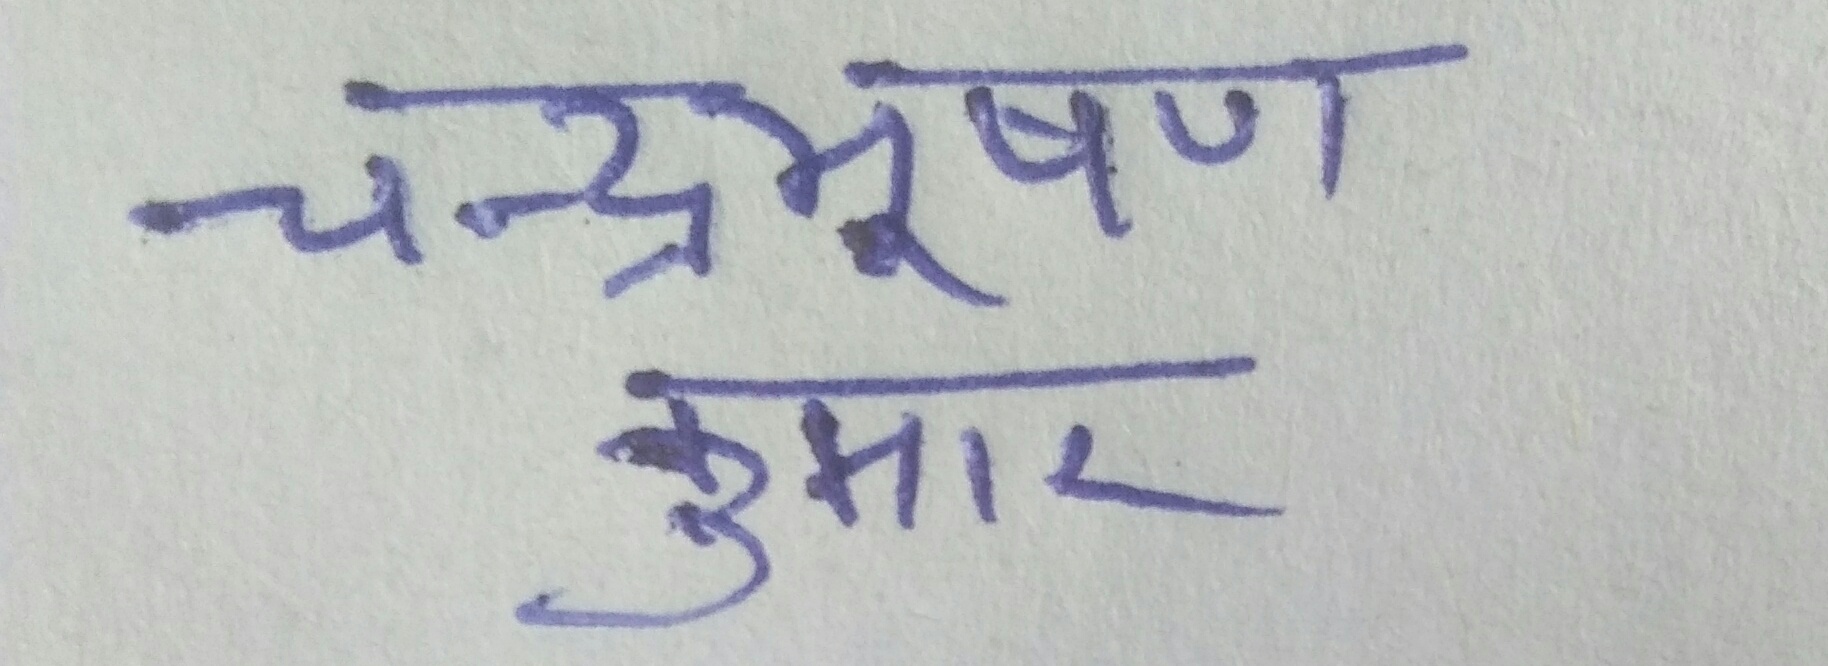 चन्द्रभूषण
कुमार